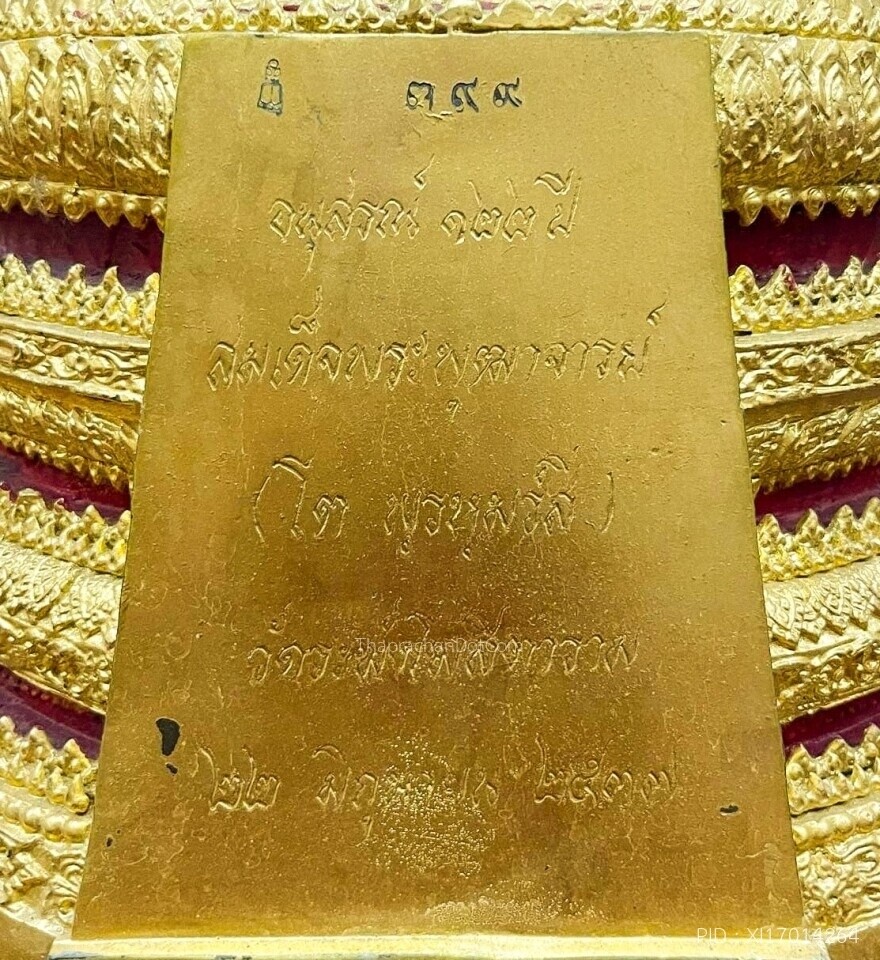 ๓๙๙
อนุสรณ์ ๑๒๒ ปี
สมเด็จพระพุฒาจารย์
(โต พฺรหฺมรํสี)
วัดระฆังโฆสิตาราม
ThaprachanDotCom
๒๒ มิถุนายน ๒๕๓๗
PID : XI17014264